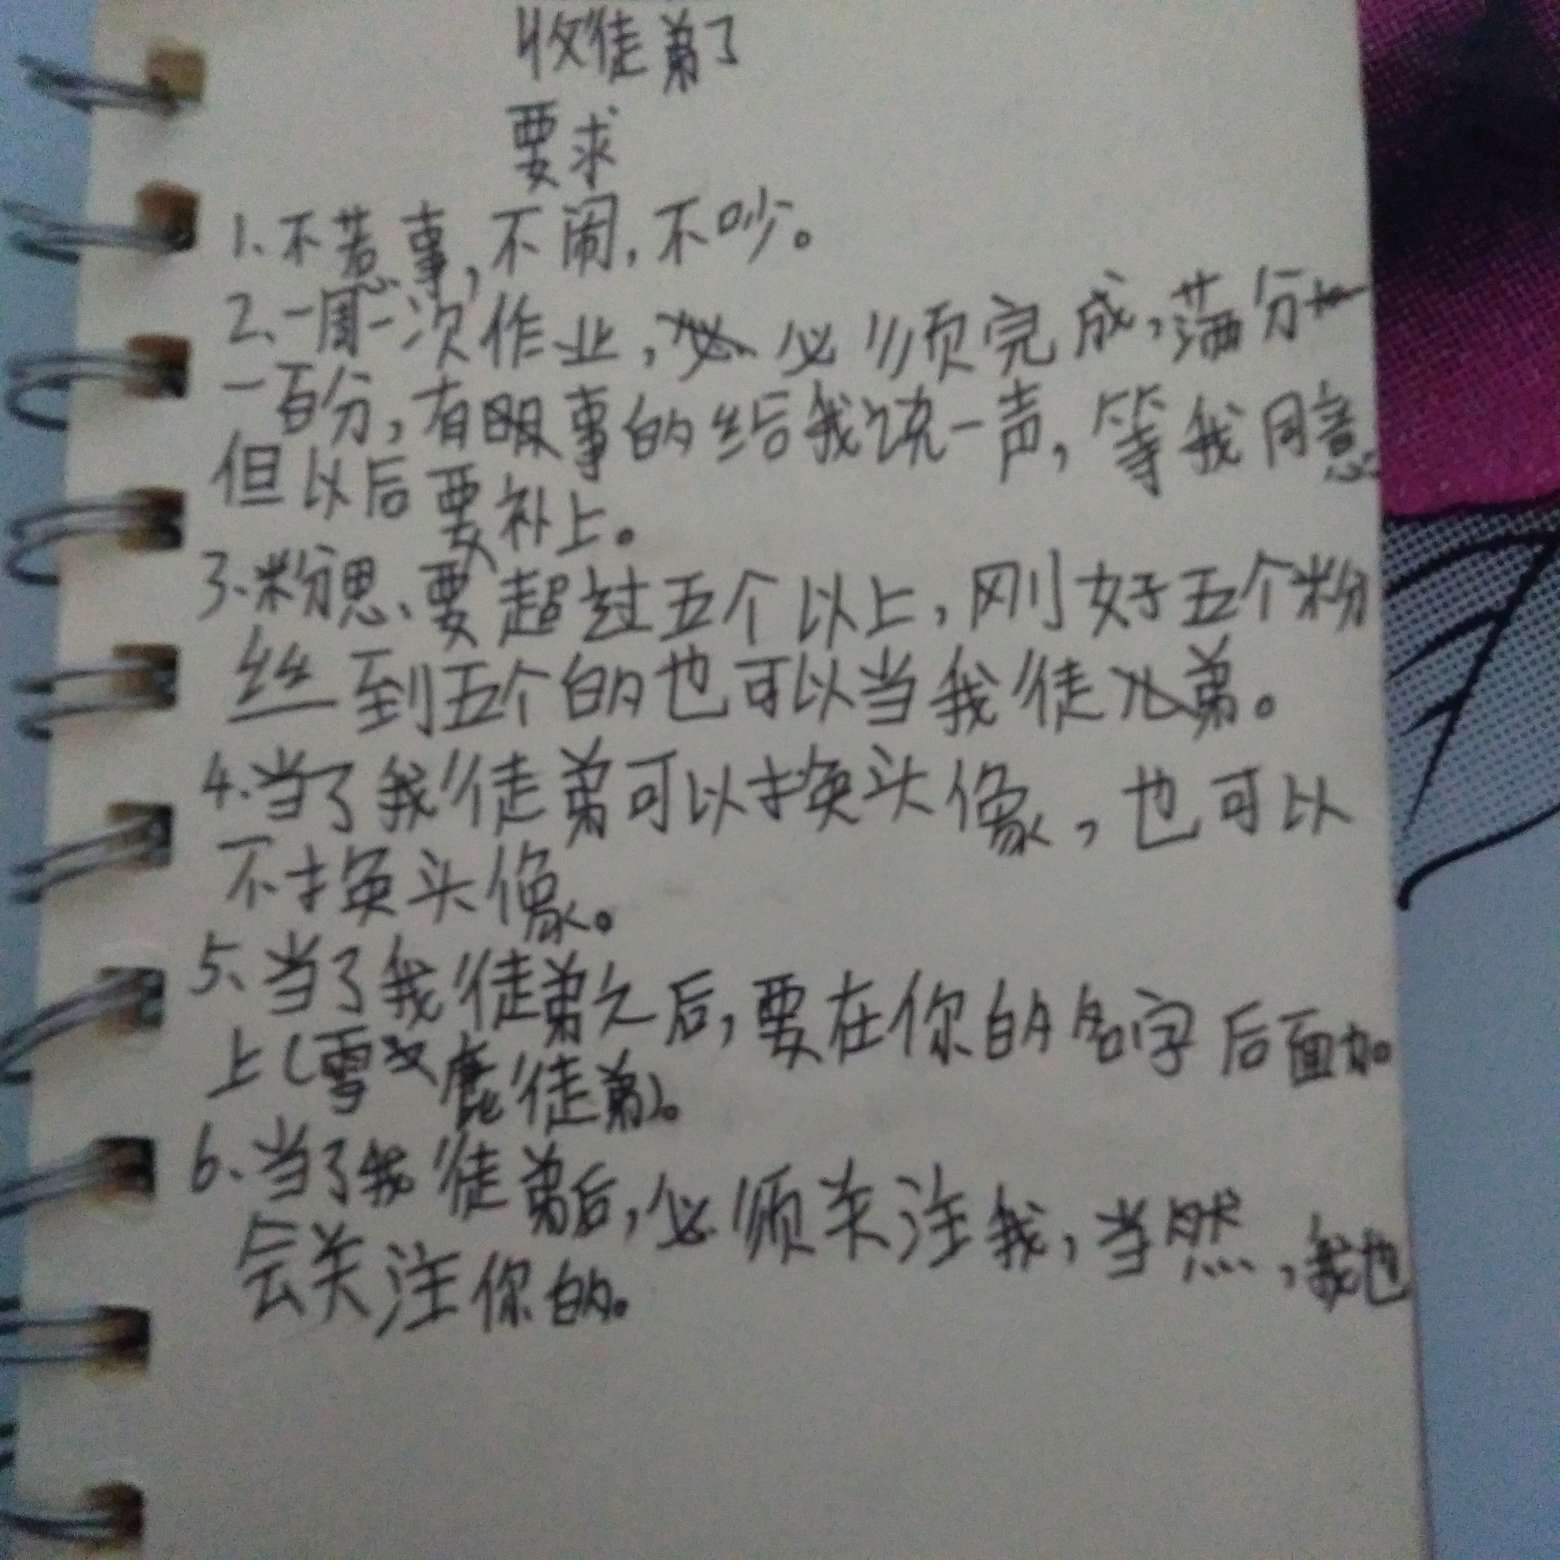 收徒弟了
要求
1、不惹事,不闹,不吵。
2、一周一次作业,必须完成,满分
一百分,有事的给我说一声,等我同意
但以后要补上。
3、粉思、要超过五个以上,刚好五个粉
丝到五个的也可以当我徒弟。
4、当了我徒弟可以换头像,也可以
不换头像。
5、当了我徒弟之后,要在你的名字后面加
上(雪鹿徒弟)。
6、当了我徒弟后,必须关注我,当然,我也
会关注你的。